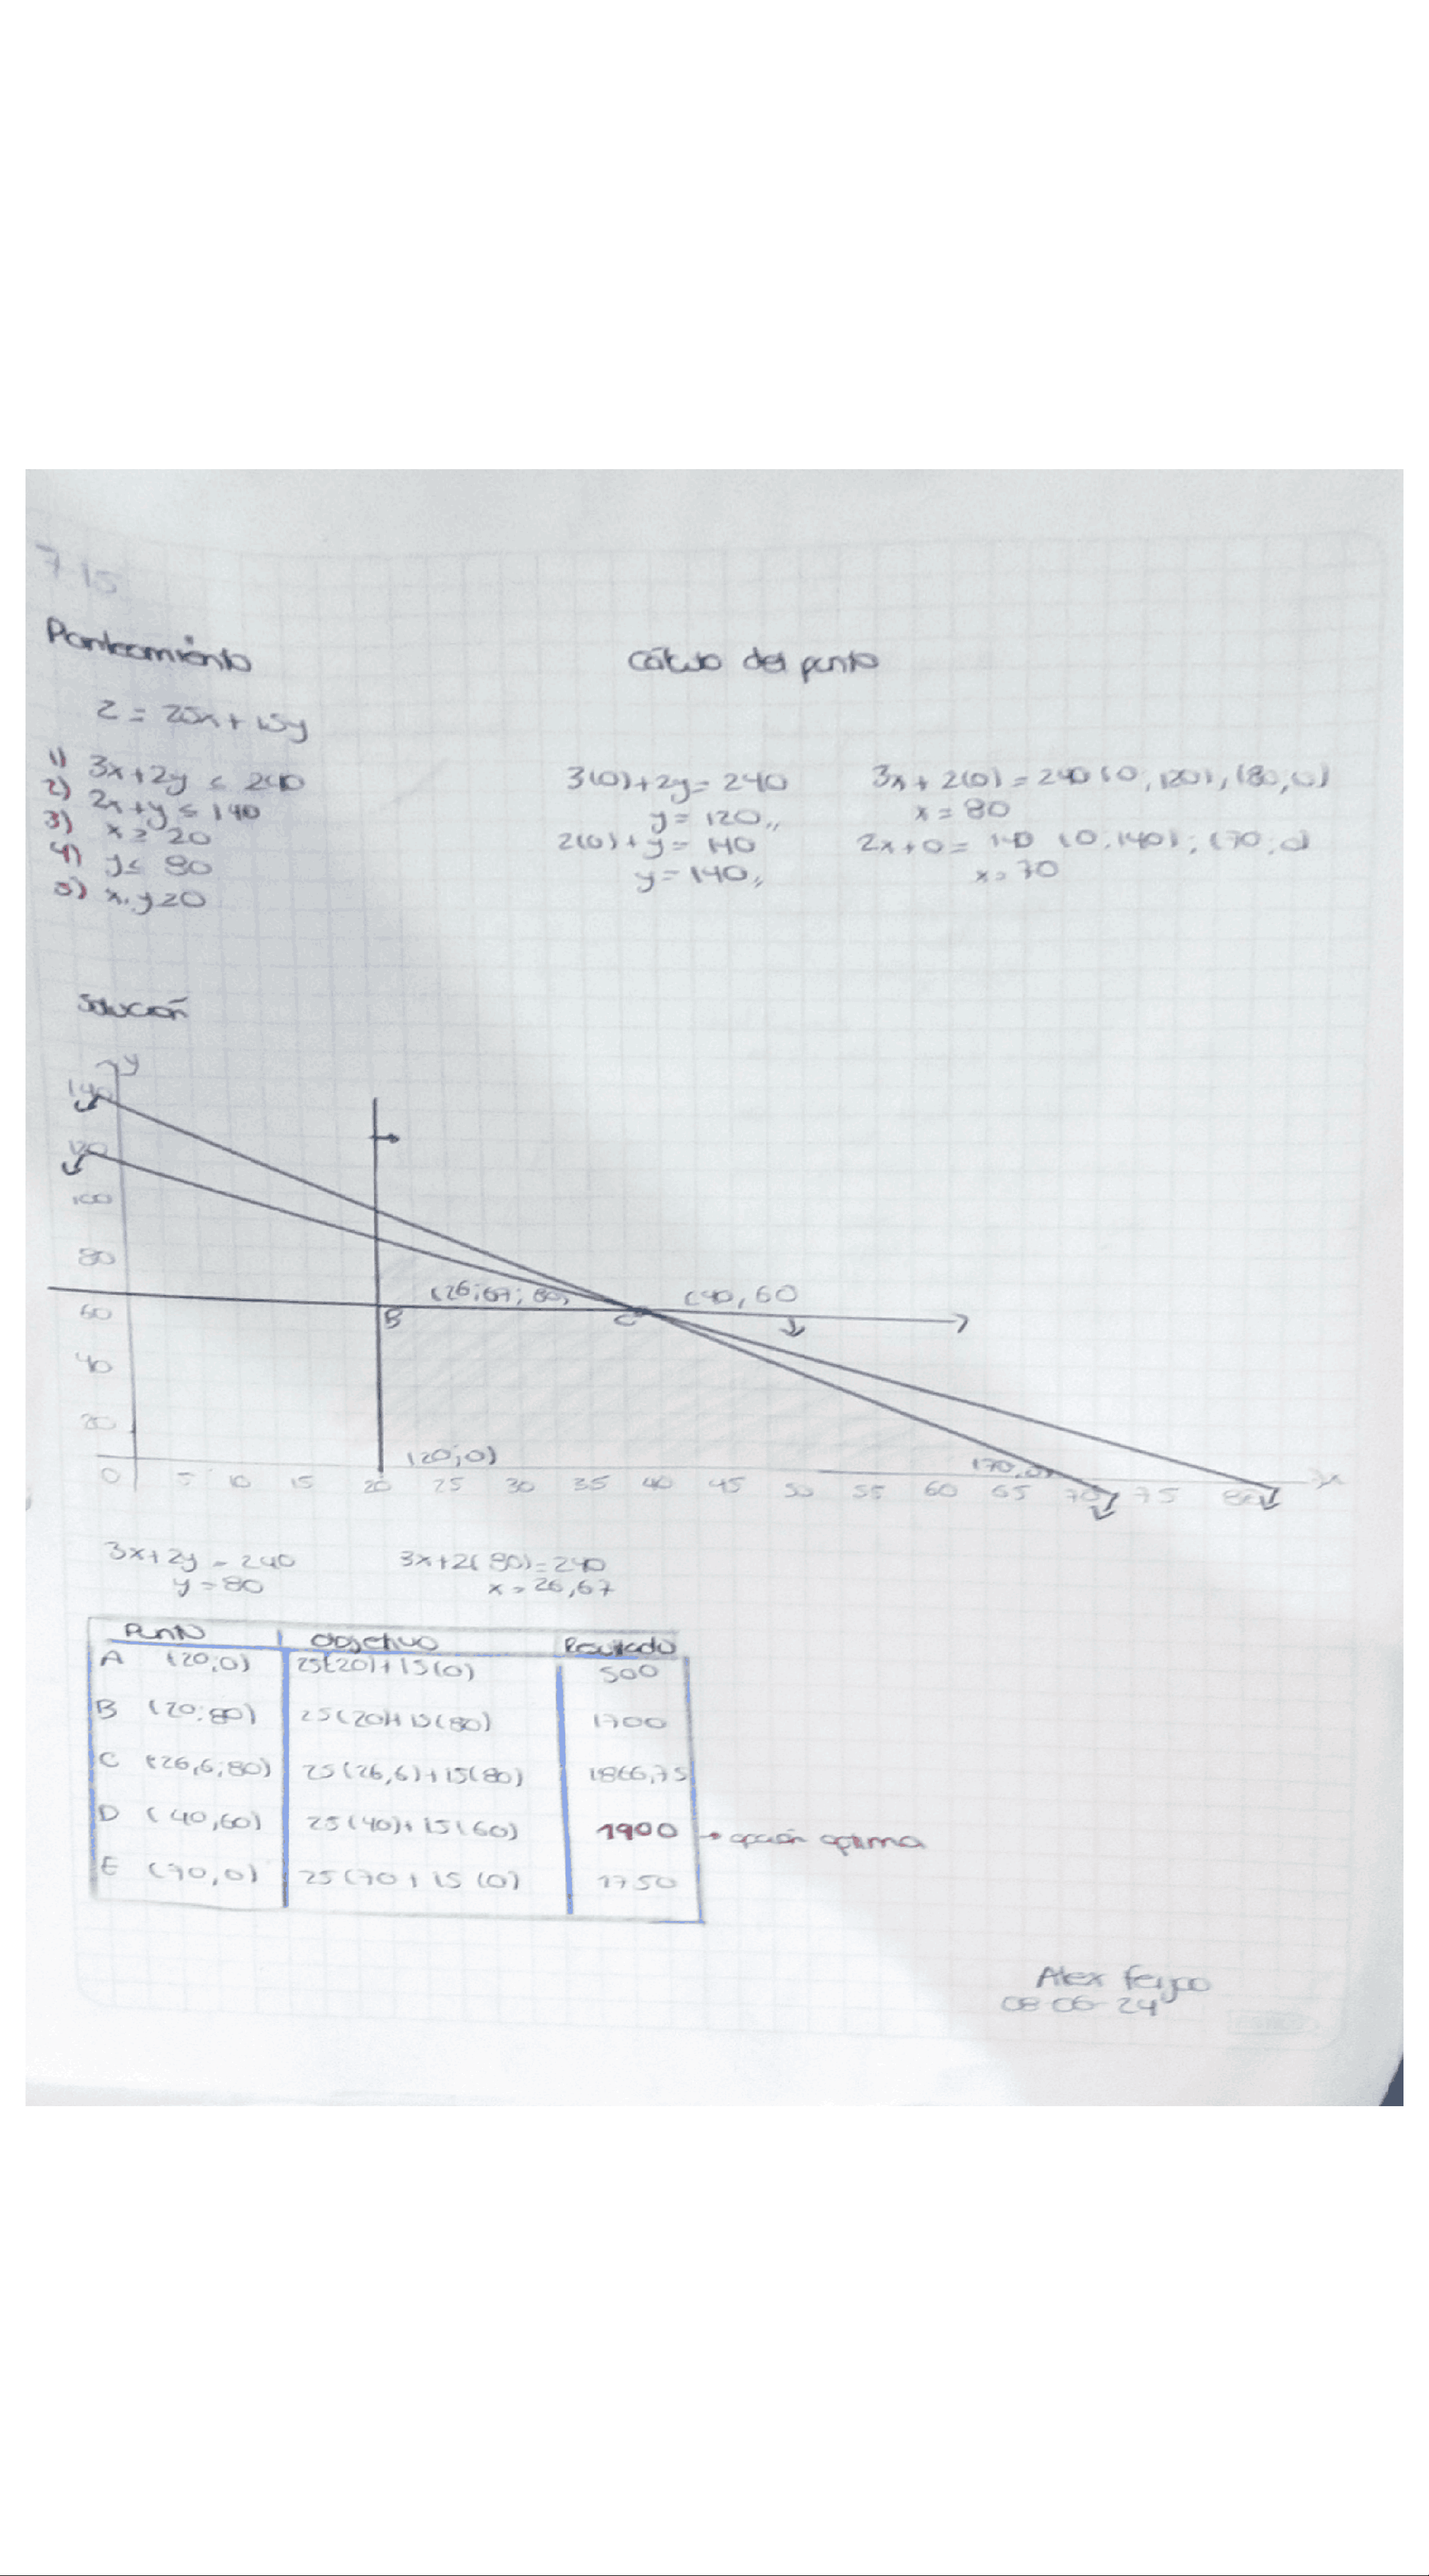 7-15
Planteamiento
Cálculo del punto
Z = 25x + 15y
1) 3x+2y ≤ 240
2) 2x+y ≤ 140
3) x ≥ 20
4) y ≤ 80
5) x, y ≥ 0
3(0)+2y = 240
y = 120,,
2(0)+y = 140
y = 140,,
3x + 2(0) = 240 (0, 120), (80,0)
x = 80
2x+0 = 140 (0,140); (70;0)
x = 70
Solución
y
140
120
100
80
60
40
20
(26;67; 80)
(40,60
B
C
(20;0)
(70,0)
0 5 10 15 20 25 30 35 40 45 50 55 60 65 70 75 80 x
3x+2y = 240
y = 80
3x+2(80)=240
x = 26,67
Punto Objetivo Resultado
A (20;0) 25(20)+15(0) 500
B (20;80) 25(20)+15(80) 1700
C (26,6;80) 25(26,6)+15(80) 1866,75
D (40,60) 25(40)+15(60) 1900 → opción optima
E (70,0) 25(70+15(0) 1750
Alex Feijoo
08-06-24